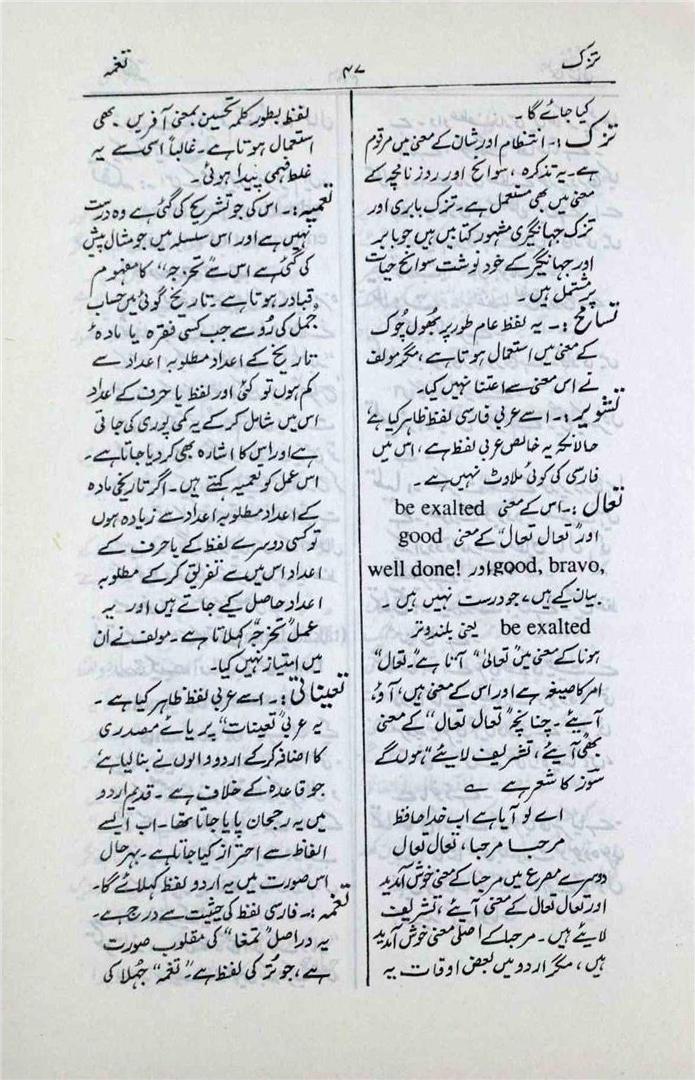 تزک
۴۷
تغمہ
کیا جائے گا۔
تزک :۔ انتظام اور شان کے معنی میں مرقوم
ہے۔ یہ تذکرہ، سوانح اور روزنامچہ کے
معنی میں بھی مستعمل ہے۔ تزک بابری اور
تزک جہانگیری مشہور کتابیں ہیں جو بابر
اور جہانگیر کے خود نوشت سوانح حیات
پر مشتمل ہیں۔
تسامح :۔ یہ لفظ عام طور پر بھول چوک
کے معنی میں استعمال ہوتا ہے، مگر مولف
نے اس معنی سے اعتنا نہیں کیا۔
تشویم :۔ اسے عربی فارسی لفظ ظاہر کیا ہے
حالانکہ یہ خالص عربی لفظ ہے، اس میں
فارسی کی کوئی ملاوٹ نہیں ہے۔
تعال :۔ اس کے معنی be exalted
اور "تعال تعال" کے معنی good
good, bravo, اور well done!
بیان کیے ہیں، جو درست نہیں ہیں۔
be exalted یعنی بلند و برتر
ہونا کے معنی میں "تعالیٰ" آتا ہے۔ "تعال"
امر کا صیغہ ہے اور اس کے معنی ہیں، آؤ،
آیئے۔ چنانچہ "تعال تعال" کے معنی
بھی آیئے، تشریف لایئے" ہوں گے
سوز کا شعر ہے ؎
اے لو آیا ہے اب خدا حافظ
مرحبا مرحبا، تعال تعال
دوسرے مصرع میں مرحبا کے معنی خوش آمدید
اور تعال تعال کے معنی آیئے، تشریف
لایئے ہیں۔ مرحبا کے اصلی معنی خوش آمدید
ہیں، مگر اردو میں بعض اوقات یہ
لفظ بطور کلمہ تحسین بمعنی آفریں۔ بھی
استعمال ہوتا ہے۔ غالباً اسی سے یہ
غلط فہمی پیدا ہوئی۔
تعمیہ :۔ اس کی جو تشریح کی گئی ہے وہ درست
نہیں ہے اور اس سلسلہ میں جو مثال پیش
کی گئی ہے اس سے "تخرجہ" کا مفہوم
متبادر ہوتا ہے۔ تاریخ گوئی میں حساب
جمل کی رُو سے جب کسی فقرہ یا مادہٴ
تاریخ کے اعداد مطلوبہ اعداد سے
کم ہوں تو کئی اور لفظ یا حرف کے اعداد
اس میں شامل کر کے یہ کمی پوری کی جاتی
ہے اور اس کا اشارہ بھی کر دیا جاتا ہے۔
اس عمل کو تعمیہ کہتے ہیں۔ اگر تاریخی مادہ
کے اعداد مطلوبہ اعداد سے زیادہ ہوں
تو کسی دوسرے لفظ کے یا حرف کے
اعداد اس میں سے تفریق کر کے مطلوبہ
اعداد حاصل کیے جاتے ہیں اور یہ
عمل "تخرجہ" کہلاتا ہے۔ مولف نے ان
میں امتیاز نہیں کیا۔
تعیناتی :۔ اسے عربی لفظ ظاہر کیا ہے۔
یہ عربی "تعینات" پر یائے مصدری
کا اضافہ کر کے اردو والوں نے بنا لیا ہے
جو قاعدہ کے خلاف ہے۔ قدیم اردو
میں یہ رجحان پایا جاتا تھا۔ اب ایسے
الفاظ سے احتراز کیا جاتا ہے۔ بہر حال
اس صورت میں یہ اردو لفظ کہلائے گا۔
تغمہ :۔ فارسی لفظ کی حیثیت سے درج ہے۔
یہ دراصل "تمغا" کی مقلوب صورت
ہے، جو ترکی لفظ ہے۔ "تغمہ" جہلا کی